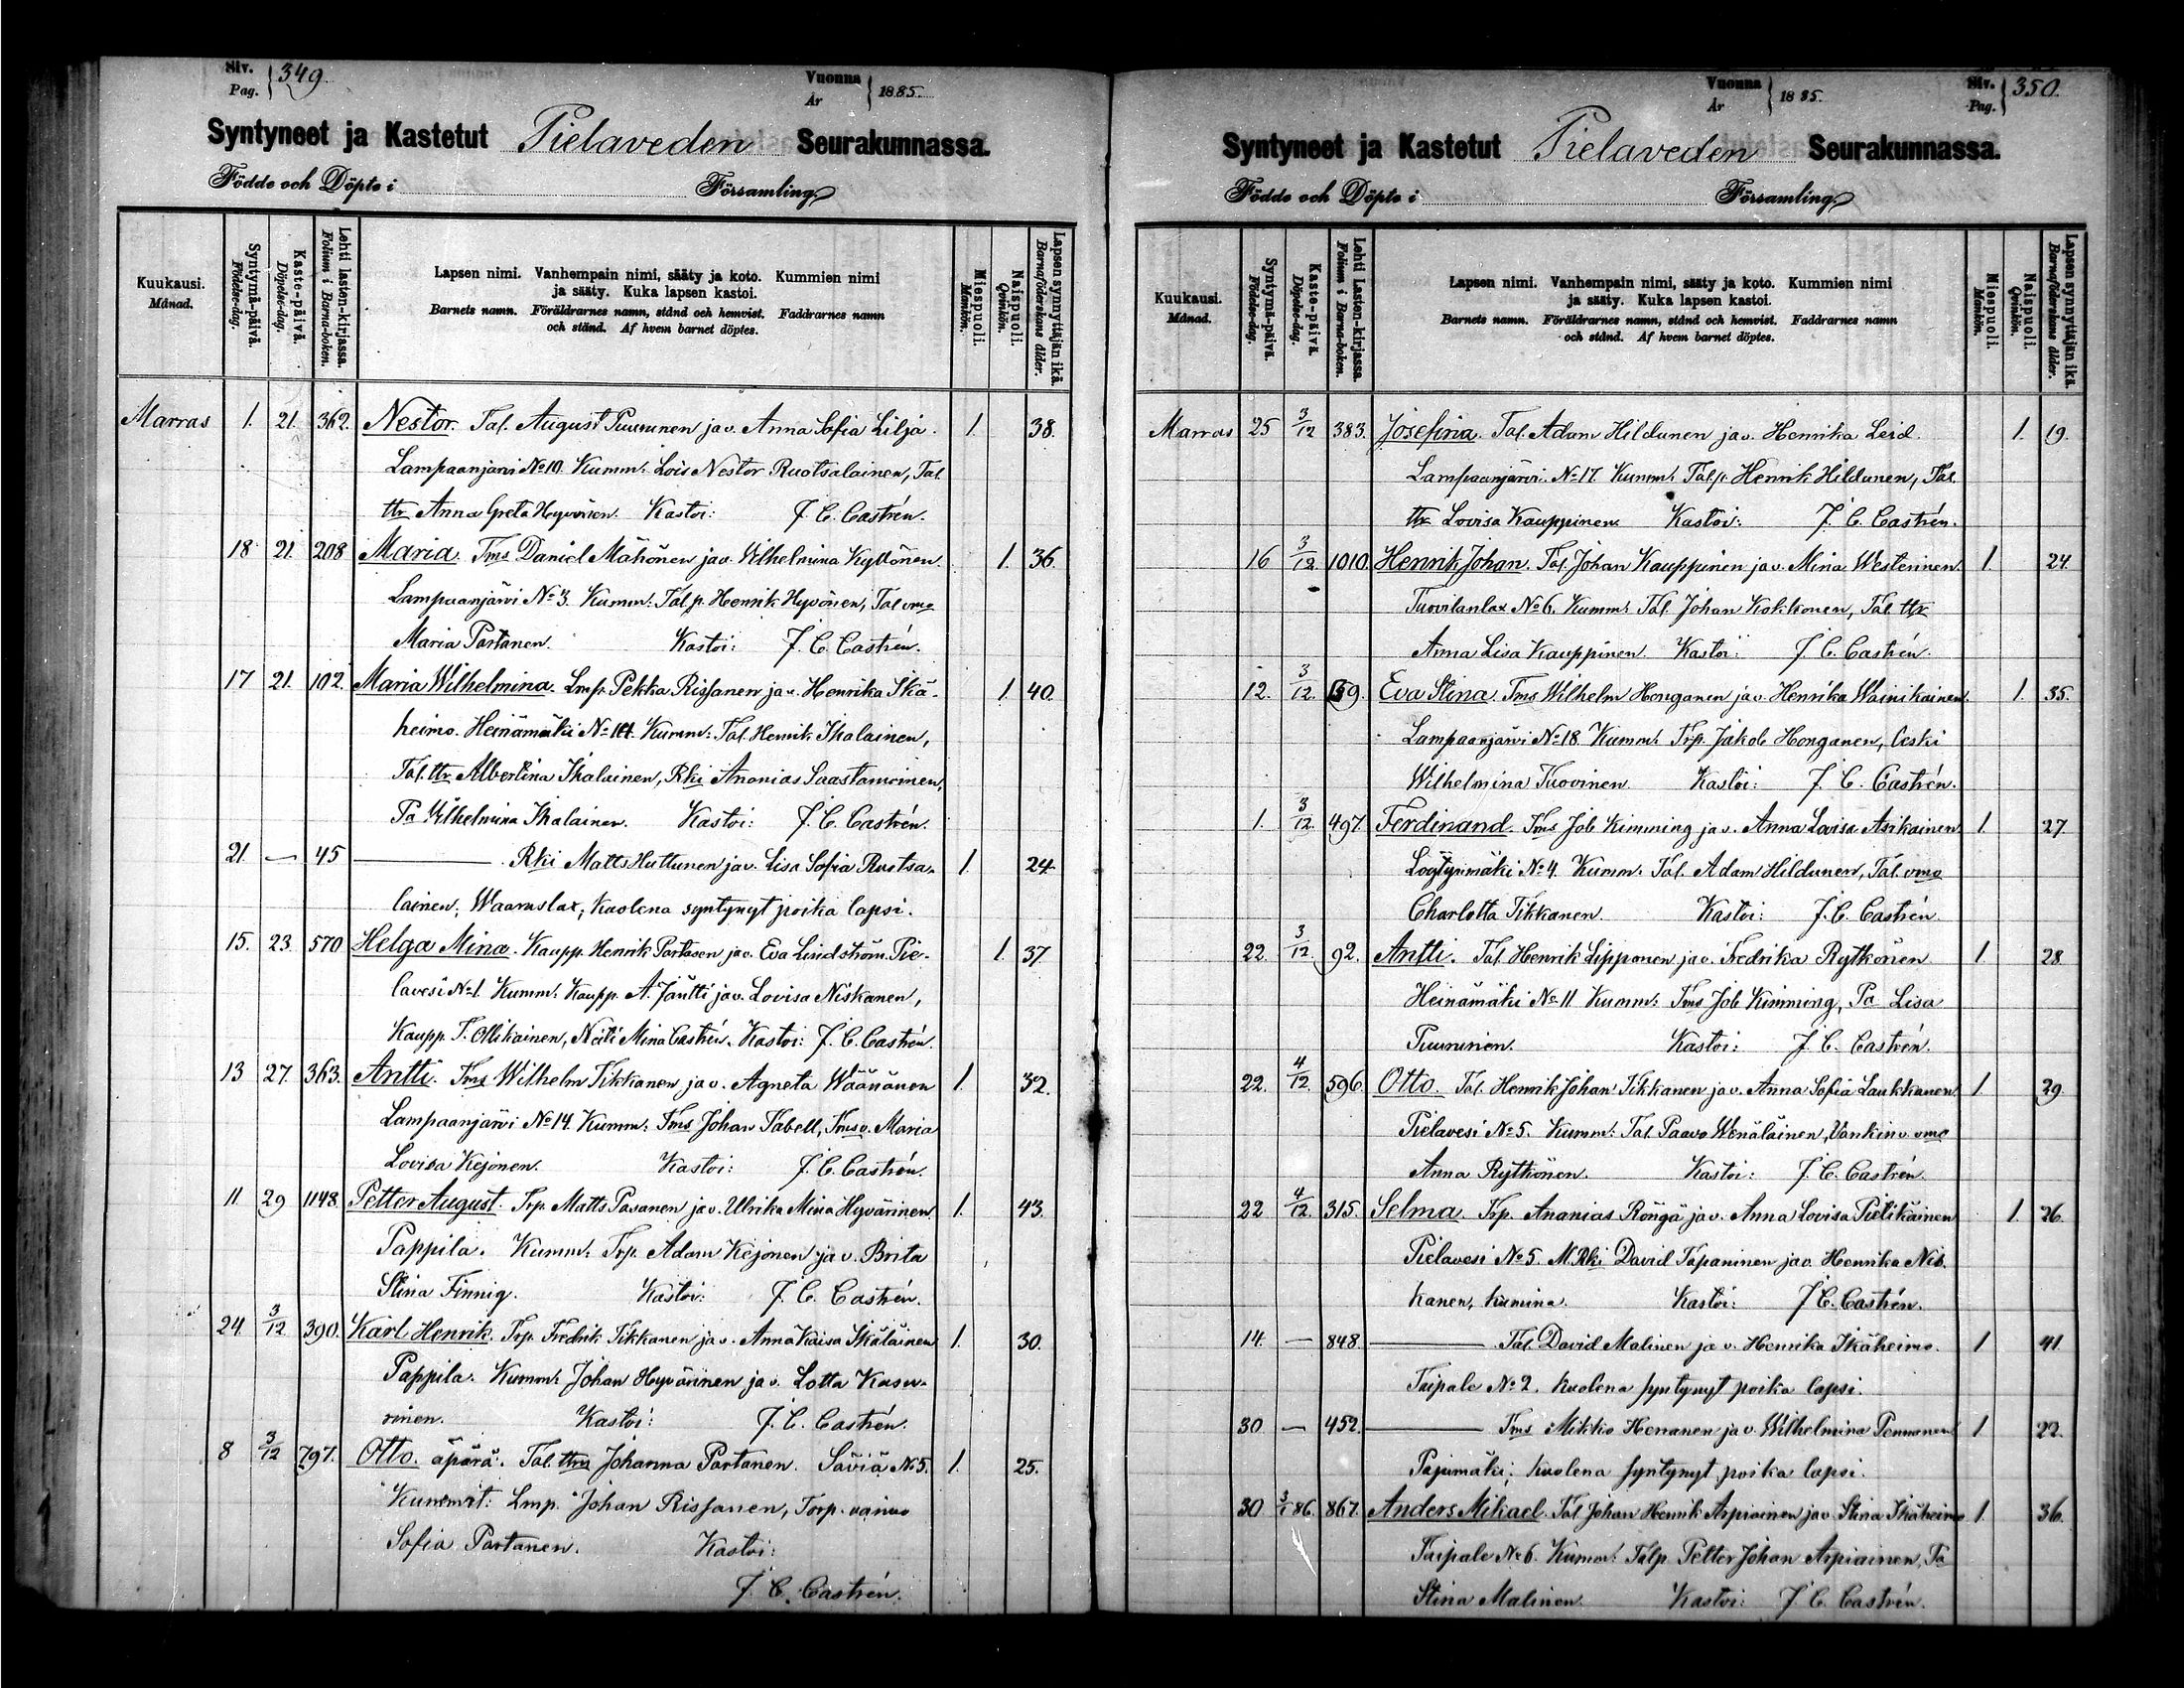 Siv. 349.
Pag.
Vuonna 1885.
År
Syntyneet ja Kastetut Pielaveden Seurakunnassa.
Födde och Döpte i Församling.
Kuukausi. Månad.
Syntymä-päivä. Födelse-dag.
Kaste-päivä. Döpelse-dag.
Lehti lasten-kirjassa. Folium i Barna-boken.
Lapsen nimi. Vanhempain nimi, sääty ja koto. Kummien nimi
ja sääty. Kuka lapsen kastoi.
Barnets namn. Föräldrarnes namn, stånd och hemvist. Faddrarnes namn
och stånd. Af hvem barnet döptes.
Miespuoli. Mankön.
Naispuoli. Qvinkön.
Lapsen synnyttäjän ikä. Barnaföderskans ålder.
Marras 1. 21. 362. Nestor. Tal. August Puurunen ja v. Anna Sofia Lilja. 1. 38.
Lampaanjärvi No 10. Kumm: Lois Nestor Ruotsalainen, Tal.
ttr Anna Greta Hyvönen. Kastoi: J. C. Castrén.
18 21. 208 Maria. Tms Daniel Mähönen ja v. Wilhelmina Kytönen. 1. 36.
Lampaanjärvi No 3. Kumm: Tal. p. Henrik Hyvönen, Tal. vmo
Maria Partanen. Kastoi: J. C. Castrén.
17 21. 102. Maria Wilhelmina. Lmp. Pekka Rissanen ja v. Henrika Ikä- 1. 40.
heimo. Heinämäki No 14. Kumm: Tal. Henrik Ihalainen,
Tal. ttr Albertina Ihalainen, Rki Ananias Saastamoinen,
Pa Wilhelmina Ihalainen. Kastoi: J. C. Castrén.
21. — 45 — Rki Matts Huttunen ja v. Lisa Sofia Ruotsa- 1. 24.
lainen, Waaraslax; kuolena syntynyt poika lapsi.
15. 23. 570 Helga Mina. Kaupp. Henrik Partasen ja v. Eva Lindström. Pie- 1. 37.
lavesi No 1. Kumm: Kaupp. A. Jäntti ja v. Lovisa Niskanen,
Kaupp. T. Ollikainen, Neiti Mina Castrén. Kastoi: J. C. Castrén.
13 27. 363. Antti. Tms Wilhelm Tikkanen ja v. Agneta Wäänänen 1. 32.
Lampaanjärvi No 14. Kumm: Tms Johan Tabell, Tms v. Maria
Lovisa Kejonen. Kastoi: J. C. Castrén.
11 29 1148. Petter August. Trp. Matts Pasanen ja v. Ulrika Mina Hyvärinen. 1. 43.
Pappila. Kumm: Trp. Adam Kejonen ja v. Brita
Stina Finnig. Kastoi: J. C. Castrén.
24. 3/12 390. Karl Henrik. Trp. Fredrik Tikkanen ja v. Anna Kaisa Ikäläinen 1. 30.
Pappila. Kumm: Johan Hyvärinen ja v. Lotta Kasu-
rinen. Kastoi: J. C. Castrén.
8 3/12 797. Otto. äpärä. Tal. ttren Johanna Partanen. Säviä No 5. 1. 25.
Kummit: Lmp. Johan Rissanen, Torp. vaimo
Sofia Partanen. Kastoi:
J. C. Castrén.
Siv. 350.
Pag.
Vuonna 1885.
År
Syntyneet ja Kastetut Pielaveden Seurakunnassa.
Födde och Döpte i Församling.
Kuukausi. Månad.
Syntymä-päivä. Födelse-dag.
Kaste-päivä. Döpelse-dag.
Lehti Lasten-kirjassa. Folium i Barna-boken.
Lapsen nimi. Vanhempain nimi, sääty ja koto. Kummien nimi
ja sääty. Kuka lapsen kastoi.
Barnets namn. Föräldrarnes namn, stånd och hemvist. Faddrarnes namn
och stånd. Af hvem barnet döptes.
Miespuoli. Mankön.
Naispuoli. Qvinkön.
Lapsen synnyttäjän ikä. Barnaföderskans ålder.
Marras 25 3/12 383. Josefina. Tal. Adam Hildunen ja v. Henrika Leid. 1. 19.
Lampaanjärvi No 17. Kumm: Tal. p. Henrik Hildunen, Tal.
ttr Lovisa Kauppinen. Kastoi: J. C. Castrén.
16 3/12 1010. Henrik Johan. Tal. Johan Kauppinen ja v. Mina Westerinen. 1. 24.
Tuovilanlax No 6. Kumm: Tal. Johan Kokkonen, Tal. ttr
Anna Lisa Kauppinen. Kastoi: J. C. Castrén.
12. 3/12 Eva Stina. Tms Wilhelm Honganen ja v. Henrika Wainikainen. 1. 35.
Lampaanjärvi No 18. Kumm: Trp. Jakob Honganen, leski
Wilhelmina Tuovinen. Kastoi: J. C. Castrén.
1. 3/12 497. Ferdinand. Tms Job Kimming ja v. Anna Lovisa Asikainen 1. 27.
No 4. Kumm: Tal. Adam Hildunen, Tal. vmo
Charlotta Tikkanen. Kastoi: J. C. Castrén
22. 3/12 92. Antti. Tal. Henrik Lipponen ja v. Fredrika Rytkönen 1. 28.
Heinämäki No 11. Kumm: Tms Job Kimming, Pa Lisa
Puurunen. Kastoi: J. C. Castrén.
22. 4/12 596. Otto. Tal. Henrik Johan Tikkanen ja v. Anna Sofia Laukkanen 1. 29.
Pielavesi No 5. Kumm: Tal. Paavo Wenäläinen, Vankinv. vmo
Anna Rytkönen. Kastoi: J. C. Castrén.
22 4/12 315. Selma. Trp. Ananias Röngä ja v. Anna Lovisa Pietikäinen 1. 26.
Pielavesi No 5. M. Rki David Tapaninen ja v. Henrika Nis-
kanen, kumina. Kastoi: J. C. Castrén.
14. — 848. — Tal. David Malinen ja v. Henrika Ikäheimo. 1 41.
Taipale No 2. kuolena syntynyt poika lapsi.
30. — 452. — Tms Mikko Heranen ja v. Wilhelmina Pennanen 1 22.
Pajumäki; kuolena syntynyt poika lapsi.
30 3/1 86. 867. Anders Mikael. Tal. Johan Henrik Arpiainen ja v. Stina Ikäheimo 1. 36.
Taipale No 6. Kumm: Talp. Petter Johan Arpiainen, Pa
Stina Malinen. Kastoi: J. C. Castrén.